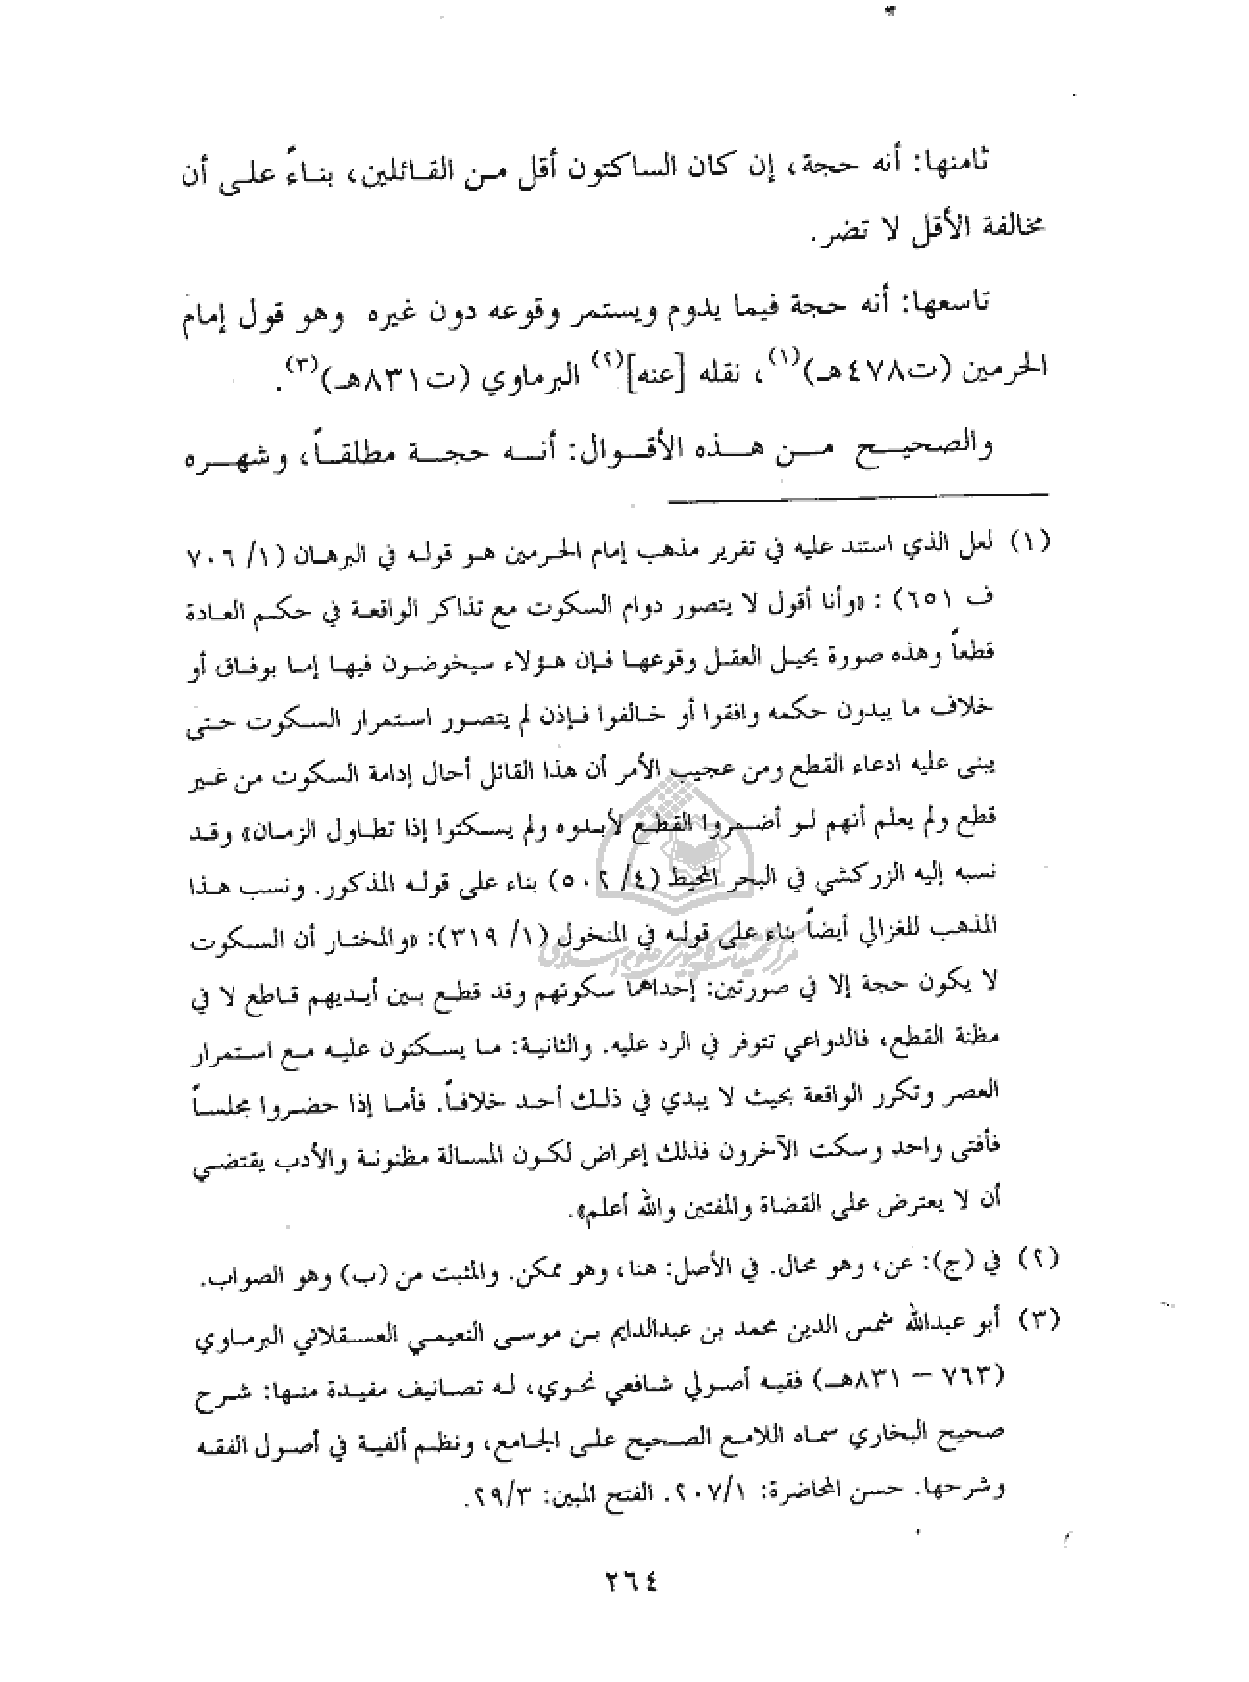 ثامنها: أنه حجة، إن كان الساكتون أقل من القائلين، بناءً على أن
مخالفة الأقل لا تضر.
تاسعها: أنه حجة فيما يدوم ويستمر وقوعه دون غيره وهو قول إمام
الحرمين (ت٤٧٨هـ)(١)، نقله [عنه](٢) البرماوي (ت٨٣١هـ)(٣).
والصحيح من هذه الأقوال: أنه حجة مطلقاً، وشهره
(١) لعل الذي استند عليه في تقرير مذهب إمام الحرمين هو قوله في البرهان (١/ ٧٠٦
ف ٦٥١) : «وأنا أقول لا يتصور دوام السكوت مع تذاكر الواقعة في حكم العادة
قطعاً وهذه صورة يحيل العقل وقوعها فإن هؤلاء سيخوضون فيها إما بوفاق أو
خلاف ما يبدون حكمه وافقوا أو خالفوا فإذن لم يتصور استمرار السكوت حتى
يبنى عليه ادعاء القطع ومن عجيب الأمر أن هذا القائل أحال إدامة السكوت من غير
قطع ولم يعلم أنهم لو أضمروا القطع لأبدوه ولم يسكتوا إذا تطاول الزمان» وقد
نسبه إليه الزركشي في البحر المحيط (٤/ ٥٠٢) بناء على قوله المذكور. ونسب هذا
المذهب للغزالي أيضاً بناء على قوله في المنخول (١/ ٣١٩): «والمختار أن السكوت
لا يكون حجة إلا في صورتين: إحداهما سكوتهم وقد قطع بين أيديهم قاطع لا في
مظنة القطع، فالدواعي تتوفر في الرد عليه. والثانية: ما يسكتون عليه مع استمرار
العصر وتكرر الواقعة بحيث لا يبدي في ذلك أحد خلافاً. فأما إذا حضروا مجلساً
فأفتى واحد وسكت الآخرون فذلك إعراض لكون المسالة مظنونة والأدب يقتضي
أن لا يعترض على القضاة والمفتين والله أعلم».
(٢) في (ج): عن، وهو محال. في الأصل: هنا، وهو ممكن. والمثبت من (ب) وهو الصواب.
(٣) أبو عبدالله شمس الدين محمد بن عبدالدايم بن موسى النعيمي العسقلاني البرماوي
(٧٦٣ – ٨٣١هـ) فقيه أصولي شافعي نحوي، له تصانيف مفيدة منها: شرح
صحيح البخاري سماه اللامع الصحيح على الجامع، ونظم ألفية في أصول الفقه
وشرحها. حسن المحاضرة: ٢٠٧/١. الفتح المبين: ٢٩/٣.
٢٦٤